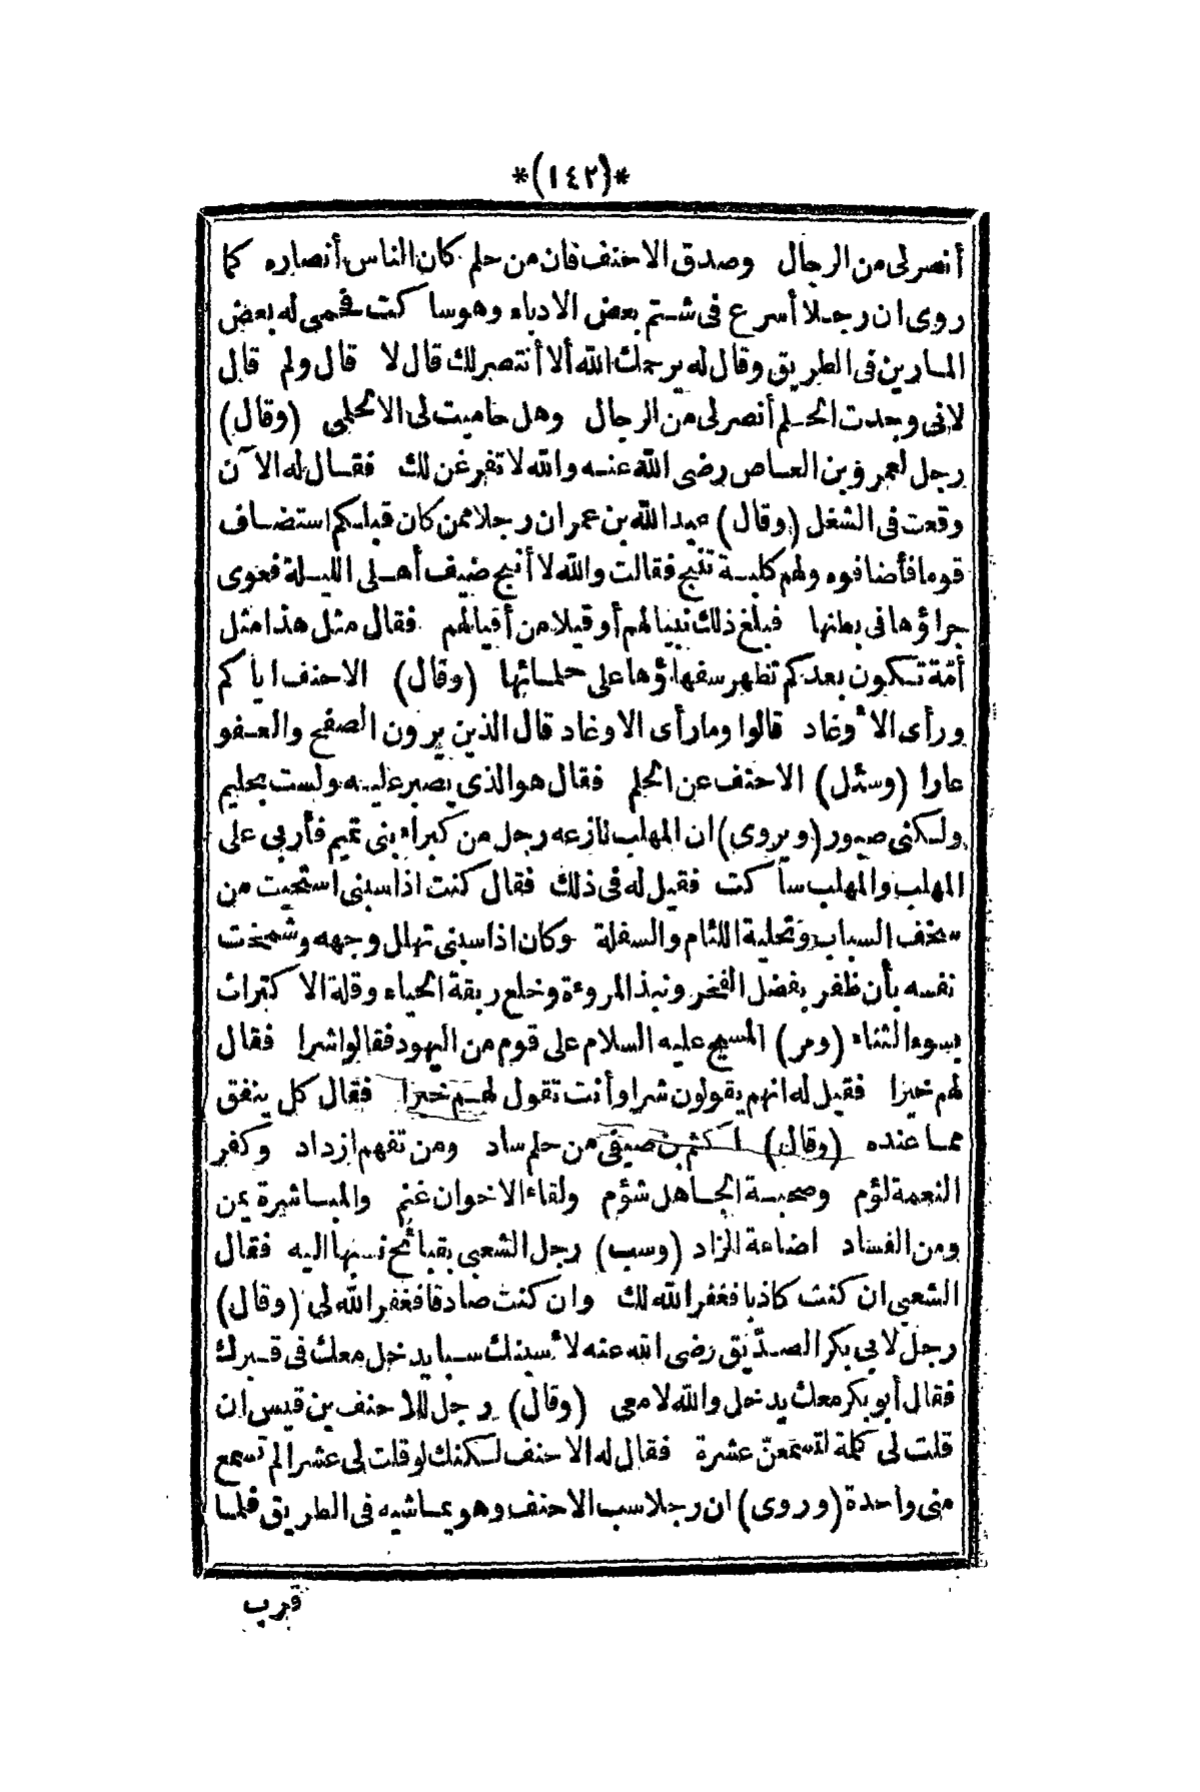 *(١٤٢)*
أنصر لى من الرجال وصدق الاحنف فان من حلم كان الناس أنصاره كما
روى ان رجلا أسرع فى شتم بعض الادباء وهو ساكت فحمى له بعض
المارين فى الطريق وقال له يرحمك الله ألا أنتصر لك قال لا قال ولم قال
لانى وجدت الحلم أنصر لى من الرجال وهل حاميت لى الا لحلمى (وقال)
رجل لعمرو بن العاص رضى الله عنه والله لا تفرغن لك فقال له الآن
وقعت فى الشغل (وقال) عبد الله بن عمر ان رجلا ممن كان قبلكم استضاف
قوما فأضافوه ولهم كلبة تنبح فقالت والله لا أنبح ضيف أهلى الليلة فعوى
جراؤها فى بطنها فبلغ ذلك نبيا لهم أو قيلا من أقيالهم فقال مثل هذا مثل
أمّة تكون بعدكم تظهر سفهاؤها على حلمائها (وقال) الاحنف اياكم
ورأى الأوغاد قالوا وما رأى الاوغاد قال الذين يرون الصفح والعفو
عارا (وسئل) الاحنف عن الحلم فقال هو الذى يصبر عليه ولست بحليم
ولكنى صبور (ويروى) ان المهلب نازعه رجل من كبراء بنى تميم فأربى على
المهلب والمهلب ساكت فقيل له فى ذلك فقال كنت اذا سبنى استحيت من
سخف السباب وتحلية اللئام والسفلة وكان اذا سبنى تهلل وجهه وشمخت
نفسه بأن ظفر بفضل الفخر ونبذ المروءة وخلع ربقة الحياء وقلة الاكتراث
بسوء الثناء (ومر) المسيح عليه السلام على قوم من اليهود فقالوا شرا فقال
لهم خيرا فقيل له انهم يقولون شرا وأنت تقول لهم خيرا فقال كل ينفق
مما عنده (وقال) اكثم بن صيفى من حلم ساد ومن تفهم ازداد وكفر
النعمة لؤم وصحبة الجاهل شؤم ولقاء الاخوان غنم والمباشرة يمن
ومن الفساد اضاعة الزاد (وسب) رجل الشعبى بقبائح نسبها اليه فقال
الشعبى ان كنت كاذبا فغفر الله لك وان كنت صادقا فغفر الله لى (وقال)
رجل لابى بكر الصدّيق رضى الله عنه لأسبنك سبا يدخل معك فى قبرك
فقال أبو بكر معك يدخل والله لا معى (وقال) رجل للاحنف بن قيس ان
قلت لى كلمة لتسمعنّ عشرة فقال له الاحنف لكنك لو قلت لى عشرا لم تسمع
منى واحدة (وروى) ان رجلا سب الاحنف وهو يماشيه فى الطريق فلما
قرب